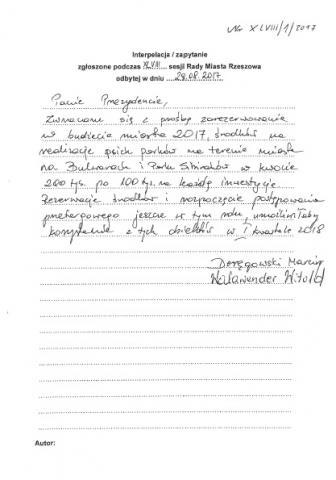 Nr XLVIII/1/2017
Interpelacja / zapytanie
zgłoszone podczas XLVIII sesji Rady Miasta Rzeszowa
odbytej w dniu 29.08.2017
Panie Prezydencie,
Zwracam się z prośbą zarezerwowanie
w budżecie miasta 2017, środków na
realizację psich parków na terenie miasta
na Bulwarach i Parku Sybiraków w kwocie
200 tys. po 100 tys. na każdą inwestycję.
Rezerwacja środków i rozpoczęcie postępowania
przetargowego jeszcze w tym roku, umożliwiłaby
korzystanie z tych obiektów w I kwartale 2018
Deręgowski Marcin
Walawender Witold
Autor: